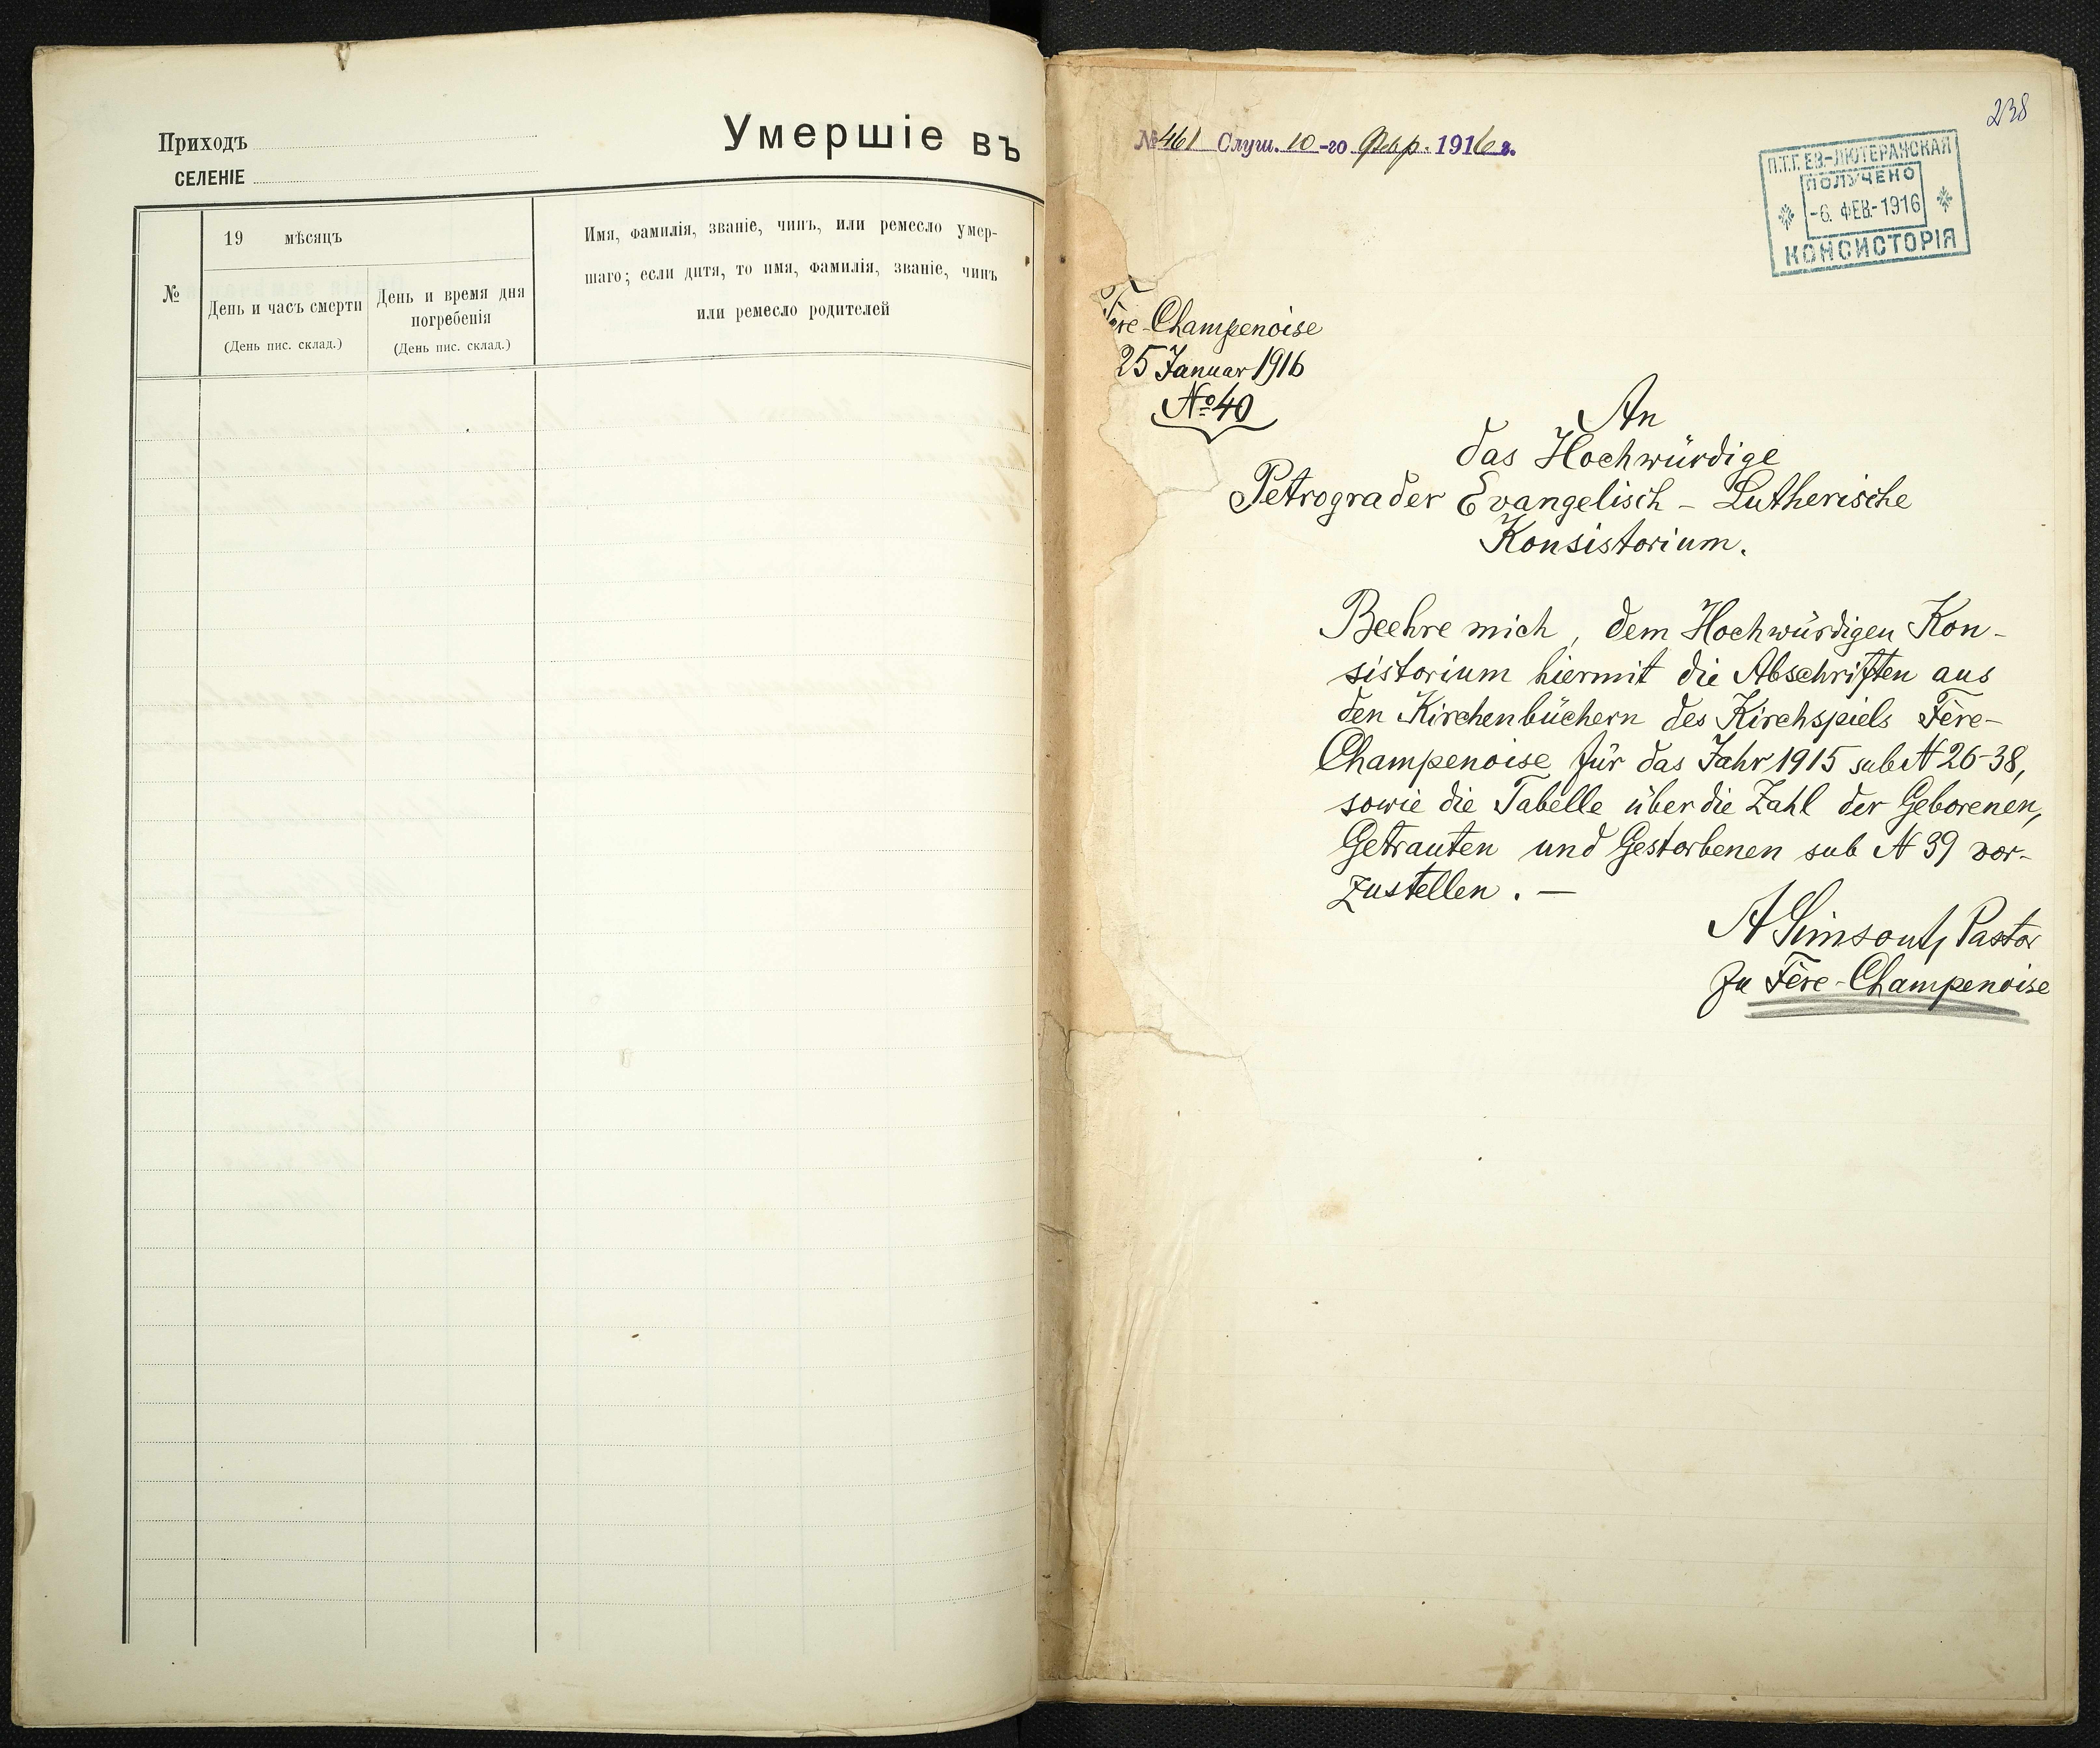 Приходъ
СЕЛЕНІЕ
Умершіе въ
№
19 мѣсяцъ
День и часъ смерти
(День пис. склад.)
День и время дня
погребенія
(День пис. склад.)
Имя, фамилія, званіе, чинъ, или ремесло умер-
шаго; если дитя, то имя, фамилія, званіе, чинъ
или ремесло родителей
238
№ 461 Слуш. 10-го Февр. 1916 г.
П.Т.Г. ЕВ.-ЛЮТЕРАНСКАЯ
ПОЛУЧЕНО
-6. ФЕВ.-1916
КОНСИСТОРІЯ
Fère-Champenoise
25 Januar 1916
№ 40
An
das Hochwürdige
Petrograder Evangelisch-Lutherische
Konsistorium.
Beehre mich, dem Hochwürdigen Kon-
sistorium hiermit die Abschriften aus
den Kirchenbüchern des Kirchspiels Fère-
Champenoise für das Jahr 1915 sub N 26-38,
sowie die Tabelle über die Zahl der Geborenen,
Getrauten und Gestorbenen sub N 39 vor-
zustellen. —
A Pastor
zu Fère-Champenoise